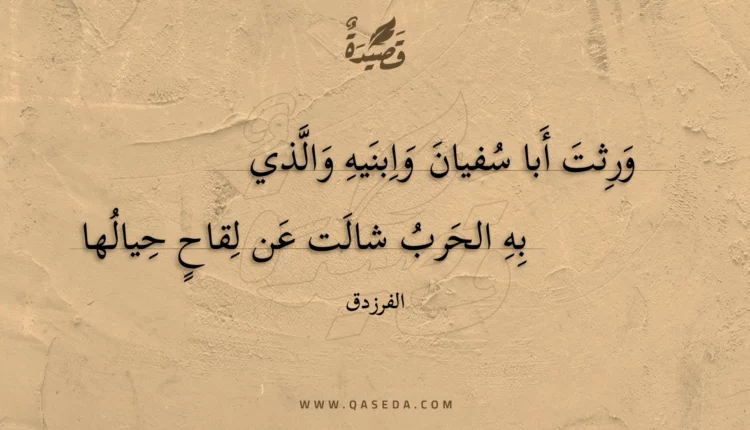 قَصِيدَةٌ
وَرِثتَ أَبا سُفيانَ وَاِبنَيهِ وَالَّذي
بِهِ الحَربُ شالَت عَن لِقاحٍ حِيالُها
الفرزدق
WWW.QASEDA.COM